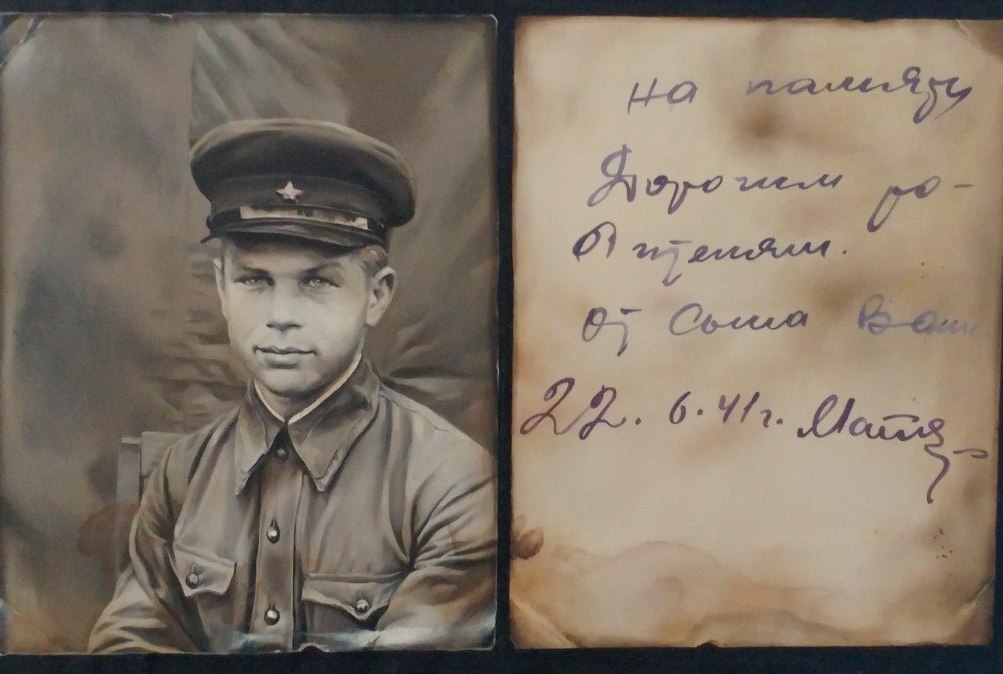 на память
Дорогим ро-
дителям.
от сына
22. 6. 41 г.